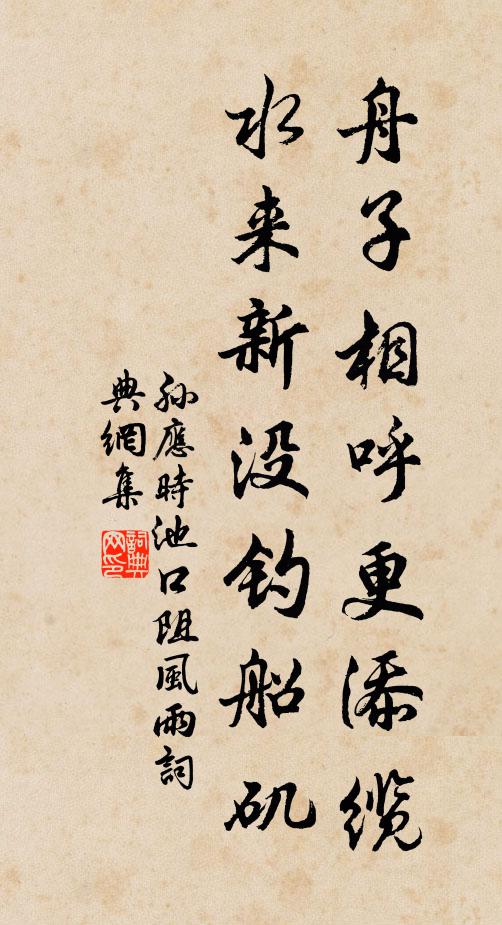 舟子相呼更添缆
水来新没钓船矶
孙應時池口阻風雨詞
典網集
詞典网印